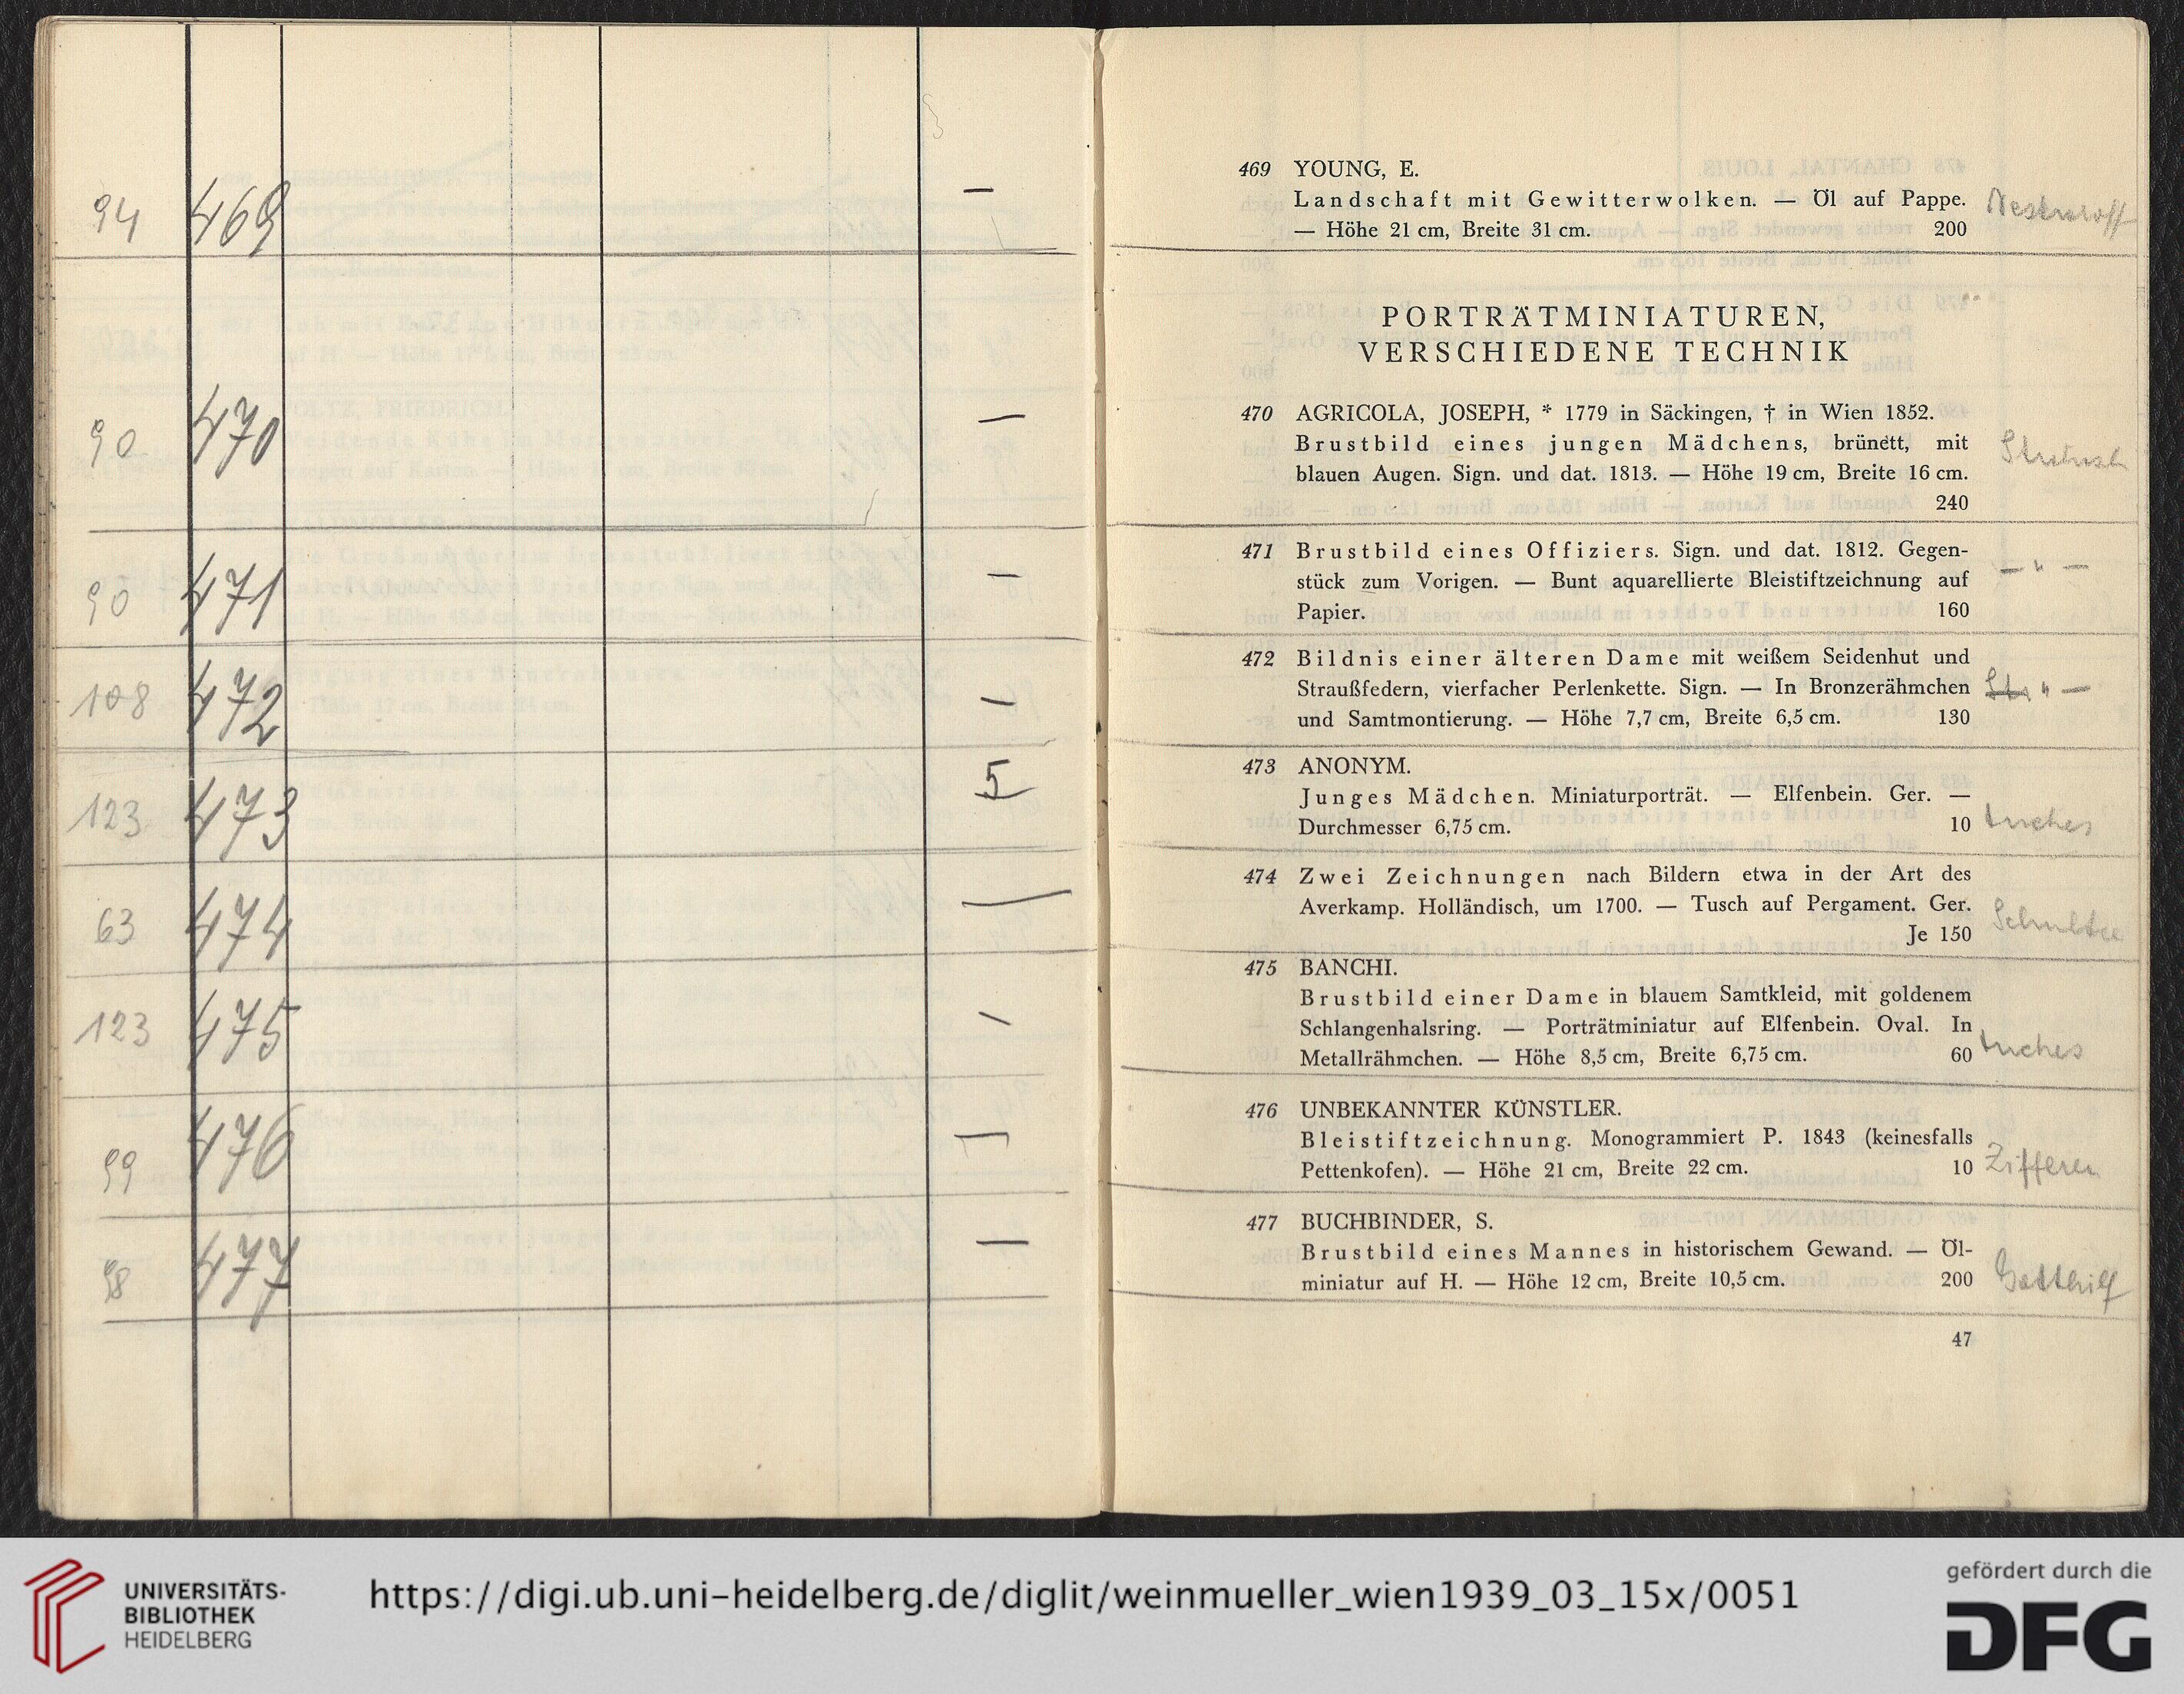 94 469 —
90 470 —
90 471 —
108 472 —
123 473 5
63 474 —
123 475 —
99 476 —
98 477 —
469 YOUNG, E.
Landschaft mit Gewitterwolken. — Öl auf Pappe.
— Höhe 21 cm, Breite 31 cm. 200
PORTRÄTMINIATUREN,
VERSCHIEDENE TECHNIK
470 AGRICOLA, JOSEPH, * 1779 in Säckingen, † in Wien 1852.
Brustbild eines jungen Mädchens, brünett, mit
blauen Augen. Sign. und dat. 1813. — Höhe 19 cm, Breite 16 cm.
240
471 Brustbild eines Offiziers. Sign. und dat. 1812. Gegen-
stück zum Vorigen. — Bunt aquarellierte Bleistiftzeichnung auf
— " —
Papier. 160
472 Bildnis einer älteren Dame mit weißem Seidenhut und
Straußfedern, vierfacher Perlenkette. Sign. — In Bronzerähmchen
" —
und Samtmontierung. — Höhe 7,7 cm, Breite 6,5 cm. 130
473 ANONYM.
Junges Mädchen. Miniaturporträt. — Elfenbein. Ger. —
Durchmesser 6,75 cm. 10
474 Zwei Zeichnungen nach Bildern etwa in der Art des
Averkamp. Holländisch, um 1700. — Tusch auf Pergament. Ger.
Je 150
475 BANCHI.
Brustbild einer Dame in blauem Samtkleid, mit goldenem
Schlangenhalsring. — Porträtminiatur auf Elfenbein. Oval. In
Metallrähmchen. — Höhe 8,5 cm, Breite 6,75 cm. 60
476 UNBEKANNTER KÜNSTLER.
Bleistiftzeichnung. Monogrammiert P. 1843 (keinesfalls
Pettenkofen). — Höhe 21 cm, Breite 22 cm. 10 Zifferer
477 BUCHBINDER, S.
Brustbild eines Mannes in historischem Gewand. — Öl-
miniatur auf H. — Höhe 12 cm, Breite 10,5 cm. 200 Gotthilf
47
UNIVERSITÄTS-
BIBLIOTHEK
HEIDELBERG
https://digi.ub.uni-heidelberg.de/diglit/weinmueller_wien1939_03_15x/0051
gefördert durch die
DFG